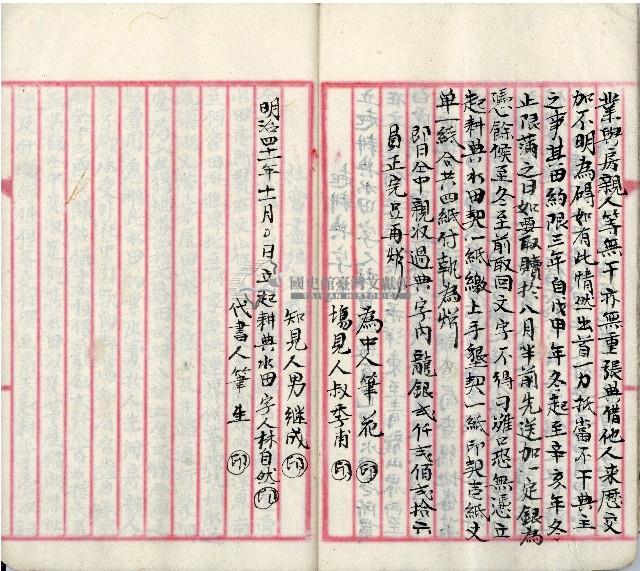 業與房親人等無干亦無重張典借他人来歷交
加不明為碍如有此情然出首一力抵當不干典主
之事其田約限三年自戊申年冬起至辛亥年冬
止限滿之日如要取贖於八月半前先送加一定銀為
憑餘候至冬至前取回文字不得刁難口恐無憑立
起耕典水田契一紙繳上手墾契一紙印契壱紙丈
单一紙合共四紙付執為炤
即日仝中親收過典字內龍銀弍仟弍佰弍拾六
員正完足再炤
為中人筆花 印
塲見人叔季甫 印
知見人男继成 印
明治四十一年十一月0日立起耕典水田字人林自然 印
代書人筆生 印
國史館臺灣文獻館
TAIWAN HISTORICA